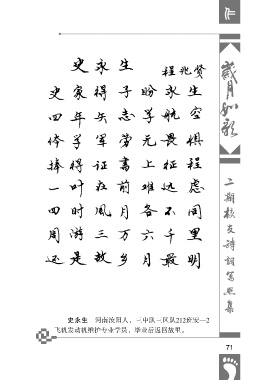 作
岁月如歌
二期校友诗词写照集
史永生 程兆贤
史家得子盼永生
四年矢志学航空
侉学军营无畏惧
捧得证書上征程
一叶在前难远虑
四时風月各不同
周游三万六千里
还是故乡月最明
史永生 河南汝阳人，三中队三区队212班安—2
飞机发动机维护专业学员，毕业后返回故里。
71